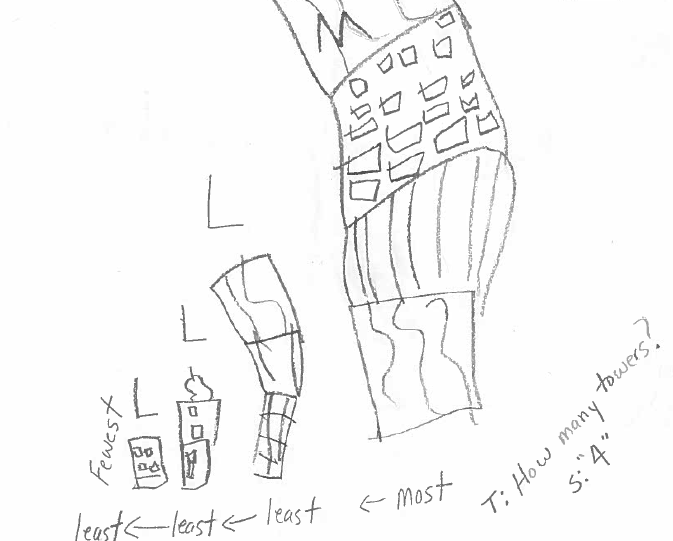 M
L
L
L
Fewest
least ← least ← least ← most
T: How many towers?
S: "4"